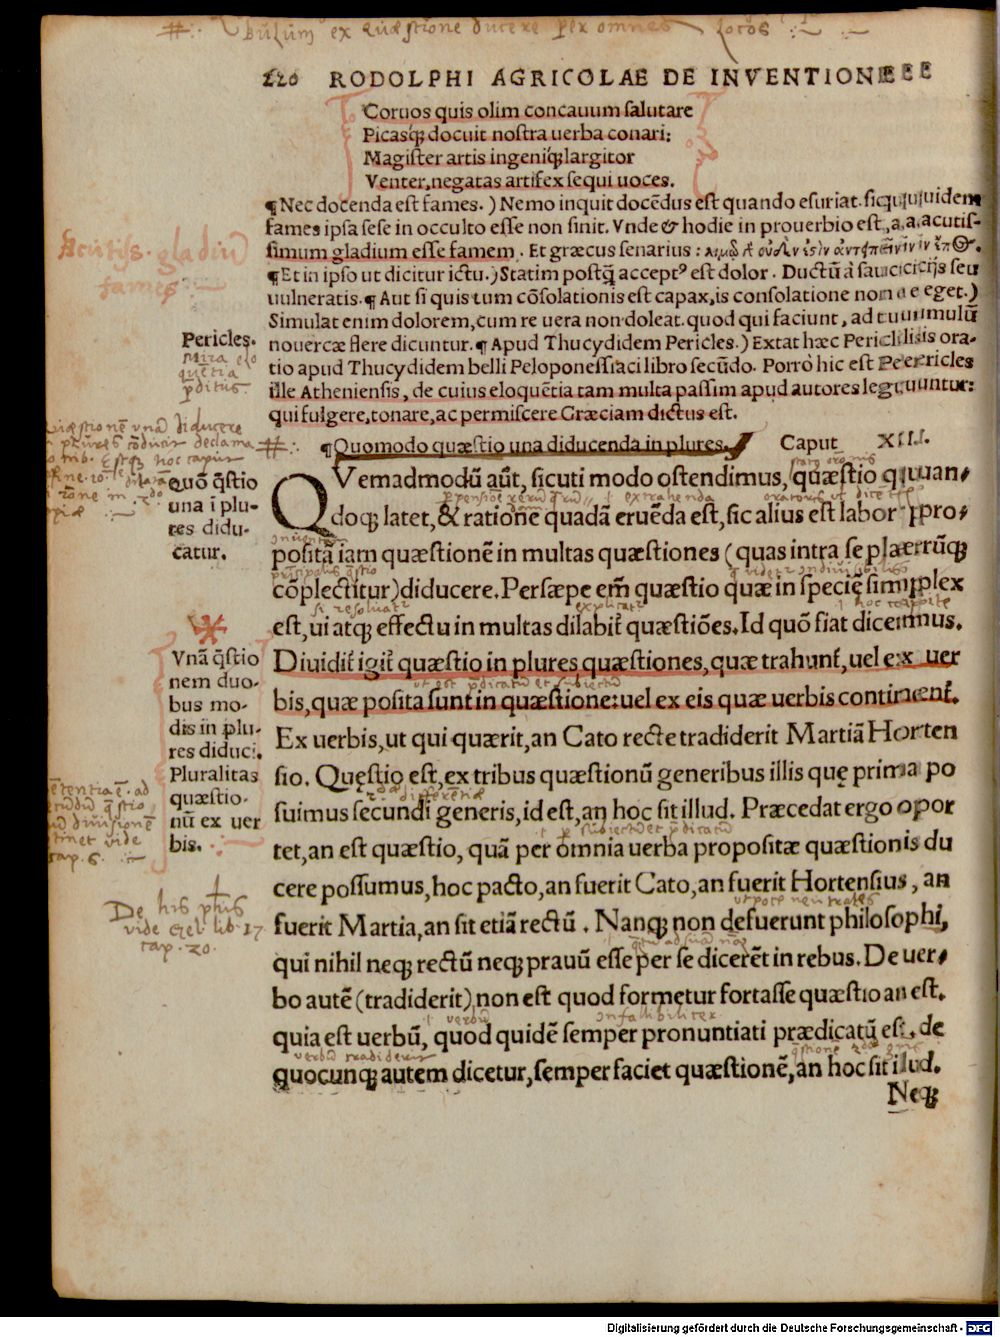 bulum ex quæstione ducere per omnes locos
220 RODOLPHI AGRICOLAE DE INVENTIONE
Coruos quis olim concauum salutare
Picasq; docuit nostra uerba conari:
Magister artis ingeniq; largitor
Venter, negatas artifex sequi uoces.
¶ Nec docenda est fames. ) Nemo inquit docēdus est quando esuriat. siquidem
fames ipsa sese in occulto esse non sinit. Vnde & hodie in prouerbio est, acutis-
simum gladium esse famem. Et græcus senarius :
Acutiss. gladiū
fames
¶ Et in ipso ut dicitur ictu.) Statim postq̃ accept⁹ est dolor. Ductū à sauciis seu
uulneratis. ¶ Aut si quis tum cōsolationis est capax, is consolatione non eget.)
Simulat enim dolorem, cum re uera non doleat. quod qui faciunt, ad tumulū
nouercæ flere dicuntur. ¶ Apud Thucydidem Pericles.) Extat hæc Periclis ora-
tio apud Thucydidem belli Peloponessiaci libro secūdo. Porrò hic est Pericles
ille Atheniensis, de cuius eloquētia tam multa passim apud autores leguntur:
qui fulgere, tonare, ac permiscere Græciam dictus est.
Pericles.
Mira elo
quētia
p̄ditus
¶ Quomodo quæstio una diducenda in plures. Caput XIII.
quō q̃stio
una ī plu-
res didu-
catur.
QVemadmodū aūt, sicuti modo ostendimus, quæstio quan-
doq; latet, & ratione quadā eruēda est, sic alius est labor pro-
positā iam quæstionē in multas quæstiones ( quas intra se plærūq;
cōplectitur) diducere. Persæpe em̄ quæstio quæ in speciē simplex
est, ui atq; effectu in multas dilabit̃ quæstiōes. Id quō fiat dicemus.
Diuidit̃ igit̃ quæstio in plures quæstiones, quæ trahunt̃, uel ex uer
bis, quæ posita sunt in quæstione: uel ex eis quæ uerbis continent̃.
Ex uerbis, ut qui quærit, an Cato recte tradiderit Martiā Horten
sio. Quęstio est, ex tribus quæstionū generibus illis quę prima po
suimus secundi generis, id est, an hoc sit illud. Præcedat ergo opor
tet, an est quæstio, quā per omnia uerba propositæ quæstionis du
cere possumus, hoc pacto, an fuerit Cato, an fuerit Hortensius, an
fuerit Martia, an sit etiā rectū . Nanq; non defuerunt philosophi,
qui nihil neq; rectū neq; prauū esse per se dicerēt in rebus. De uer-
bo autē (tradiderit) non est quod formetur fortasse quæstio an est.
quia est uerbū, quod quidē semper pronuntiati prædicatū est. de
quocunq; autem dicetur, semper faciet quæstionē, an hoc sit illud.
Neq;
Vnā q̃stio
nem duo-
bus mo-
dis in plu-
res diduci.
Pluralitas
quæstio-
nū ex uer
bis.
De his
vide lib. 17
cap. 20.
Digitalisierung gefördert durch die Deutsche Forschungsgemeinschaft - DFG